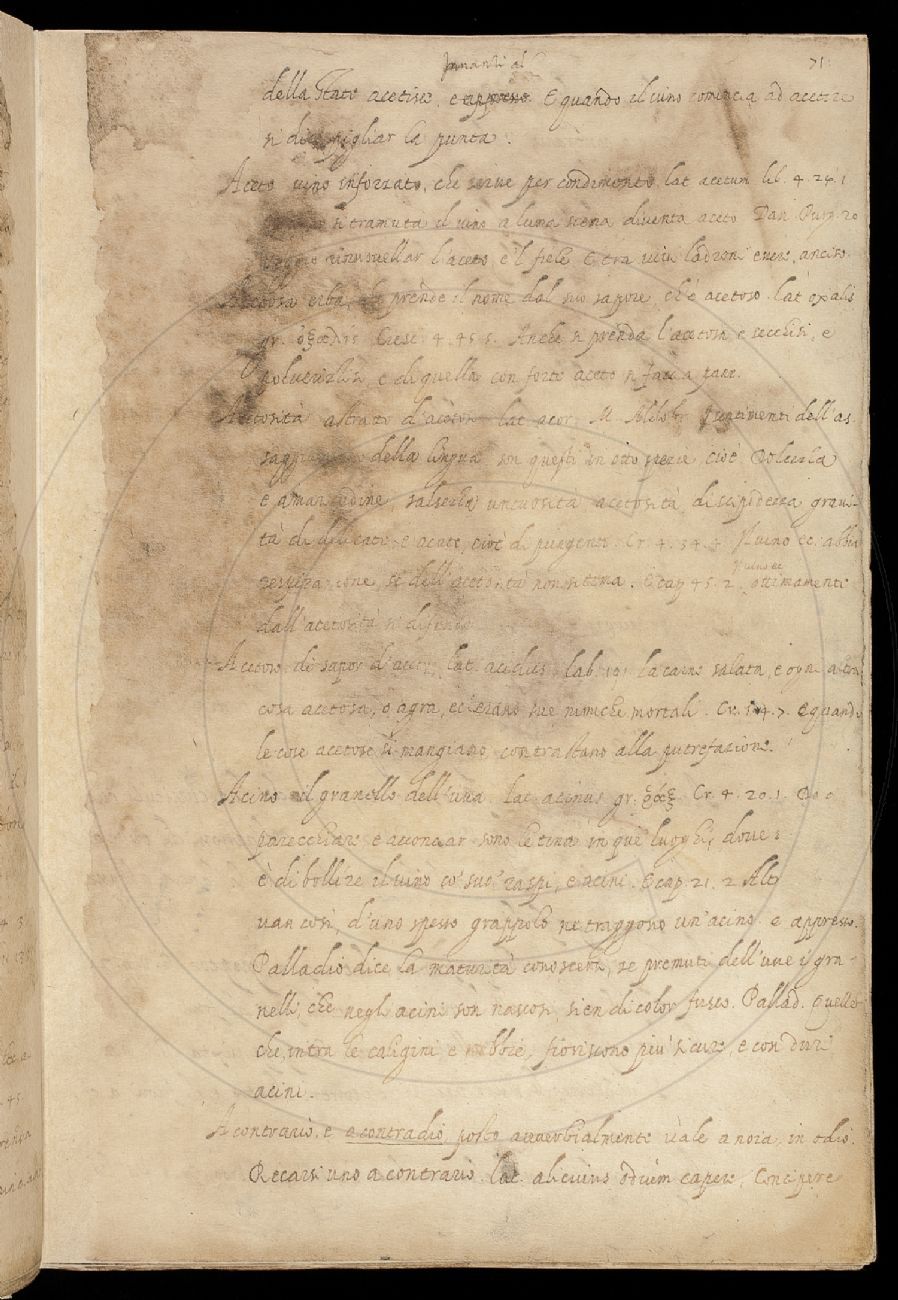 Innanzi al
71.
della State acetisce, e appresso. E quando il vino comincia ad acetire
si dice pigliar la punta.
Aceto vino inforzato, che serve per condimento. lat. acetum lib. 4. 24. 1
si tramuta il vino a luna piena diventa aceto. Dan. Purg. 20
rinnovellar l'aceto e 'l fiele E tra vivi ladroni essere anciso.
Acetosa erba, che prende il nome dal suo sapore, ch'è acetoso. lat. oxalis
gr. ὀξαλίς Cresc. 4. 45. 5. Anche si prenda l'acetosa e secchisi, e
polverizzisi, e di quella con forte aceto si faccia pane.
Acetosità astratto d'acetoso lat. acor. M. Aldobr. I sentimenti dell'as
della lingua son questi in otto spezie cioè Dolcezza
e amaritudine, salsezza untuosità acetosità discipidezza gravi-
tà di dilicate e acute, cioè di pugnenti. Cr. 4. 34. 4 Il vino ec. abbia
Il vino ec
respirazione, se dell'acetosità non si tema. E cap. 45. 2. ottimamente
dall'acetosità si difende
Acetoso di sapor d'aceto, lat. acidus. lab. 191. la carne salata, e ogni altra
cosa acetosa, o agra, ec. erano sue nimiche mortali. Cr. 4. 7. E quando
le cose acetose si mangiano contrastano alla putrefazione.
Acino il granello dell'uva. lat. acinus gr. ῥάξ Cr. 4. 20. 1.
parecchiare e acconciar sono le tina in que' luoghi, dove
è di bollire il vino co' suo' raspi, e acini. E cap. 21. 2
van così, d'uno spesso grappolo ne traggono un'acino. e appresso.
Palladio dice la maturità conoscersi, se premuti dell'uve i gra-
nelli, che negli acini son nascosi, sien di color fusco. Pallad. Quelle
che, intra le caligini e nebbie, fioriscono più sicure, e con duri
acini.
A contrario, e a contradio, posto avverbialmente vale a noia, in odio.
Recarsi uno a contrario. lat. alicuius odium capere, Concipere